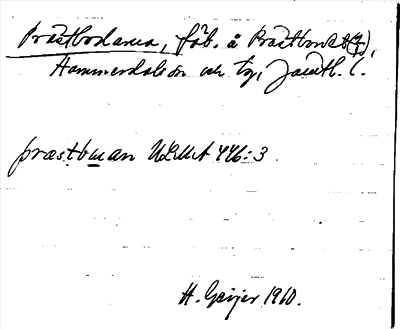 Prästbodarna, fäb. å Prästbordet (1/1),
Hammerdals sn och tg, Jämtl. l.
præstbuan ULMA 446:3.
H. Geijer 1960.